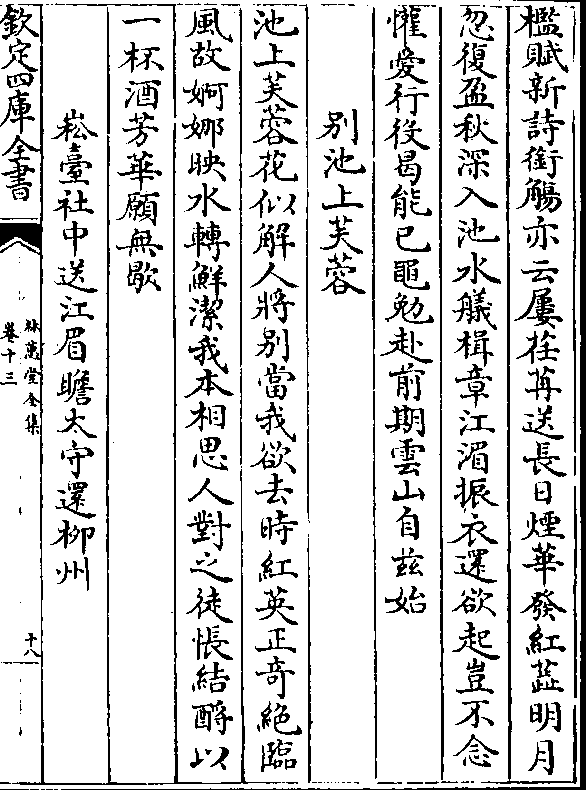 檻賦新詩銜觴亦云屢荏苒送長日煙華發紅蕋明月
忽復盈秋深入池水艤楫章江湄振衣還欲起豈不念
懽愛行役曷能已黽勉赴前期雲山自茲始
別池上芙蓉
池上芙蓉花似解人將别當我欲去時紅英正奇絶臨
風故婀娜映水轉鮮潔我本相思人對之徒悵結酹以
一杯酒芳華願無歇
崧臺社中送江眉瞻太守還柳州
欽定四庫全書
林蕙堂全集
卷十三
十八